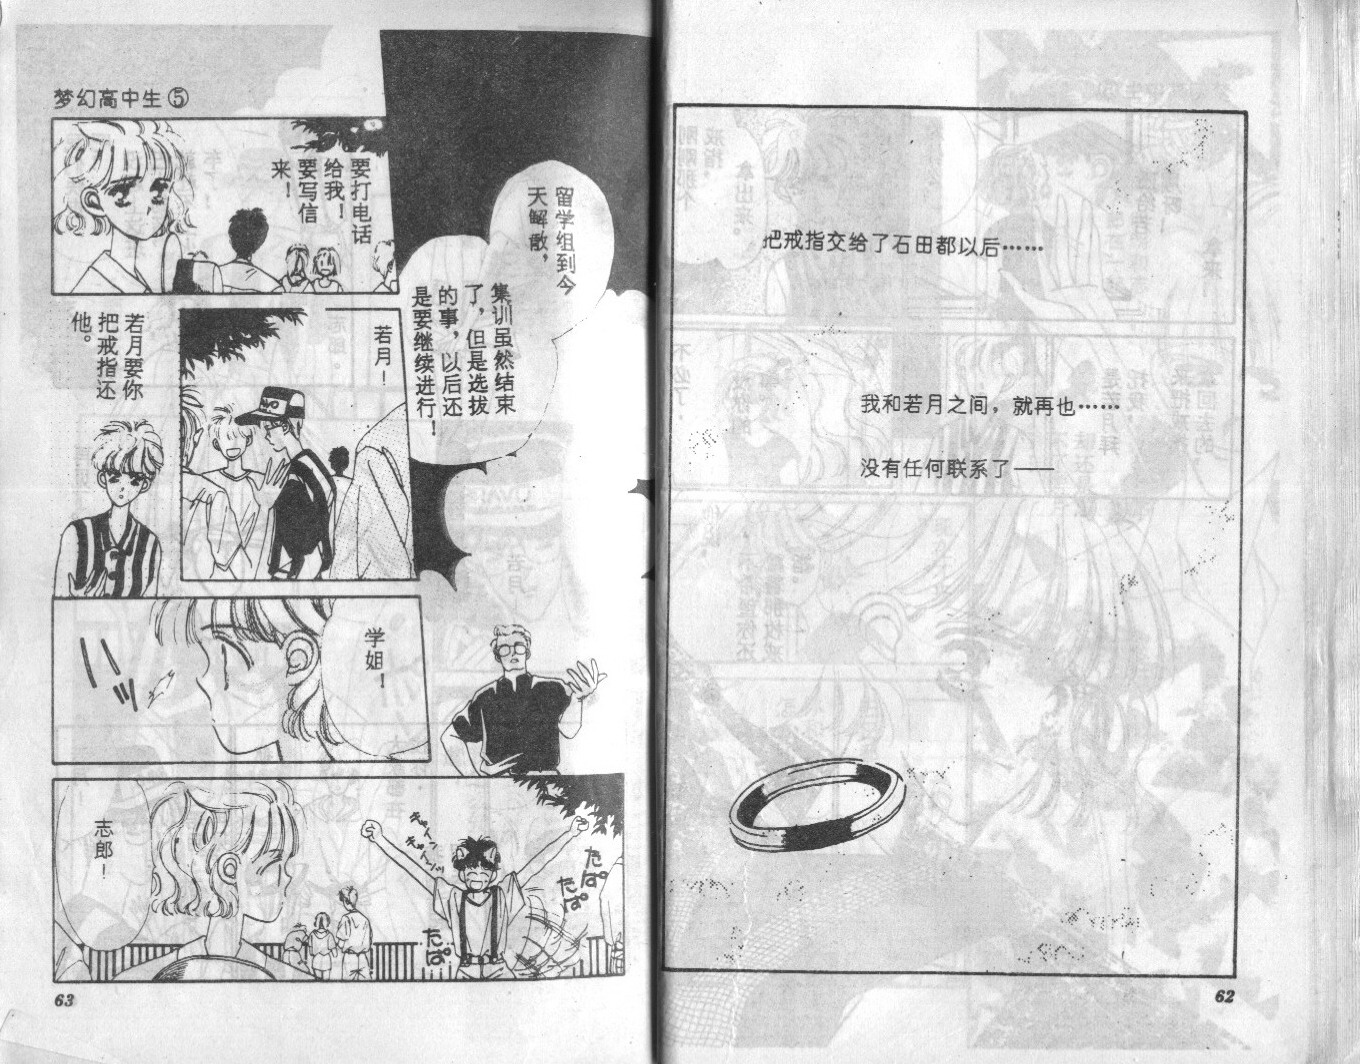 把戒指交给了石田都以后……
我和若月之间，就再也……
没有任何联系了——
62
梦幻高中生⑤
留学组到今
天解散，
集训虽然结束
了，但是选拔
的事，以后还
是要继续进行！
要打电话
给我！
要写信
来！
若月！
若月要你
把戒指还
他。
学姐！
志郎！
キャイン
キャイーンッ
たぱ
たぱ
たぱ
63